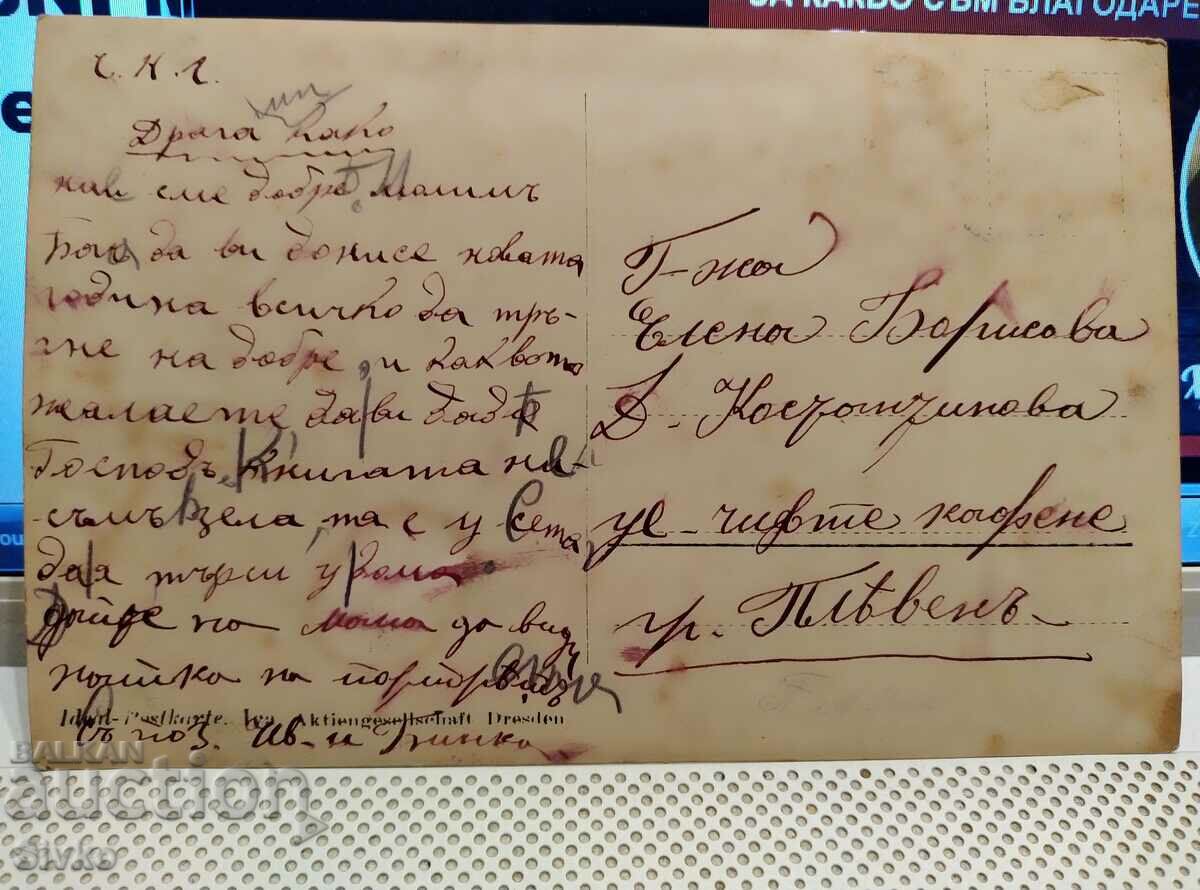 ЗА КАКВО СЪМ БЛАГОДАРЕ
Ч. Н. Г.
Драга како
ний сме добре молимъ
Бога да ви донисе новата
година всичко да тръ-
гне на добре и каквото
желаете да ви даде
Господъ. Книгата не
съмъ взела, та е у Сета
да я търси у
на мама да види
на
Ideal-Postkarte. Ica Aktiengesellschaft Dresden
Съ поз. Ив. и
Г-жа
Елена Борисова
Д. Костотинова
ул. чифте кафене
гр. Плѣвенъ
BALKAN
auction
sivko